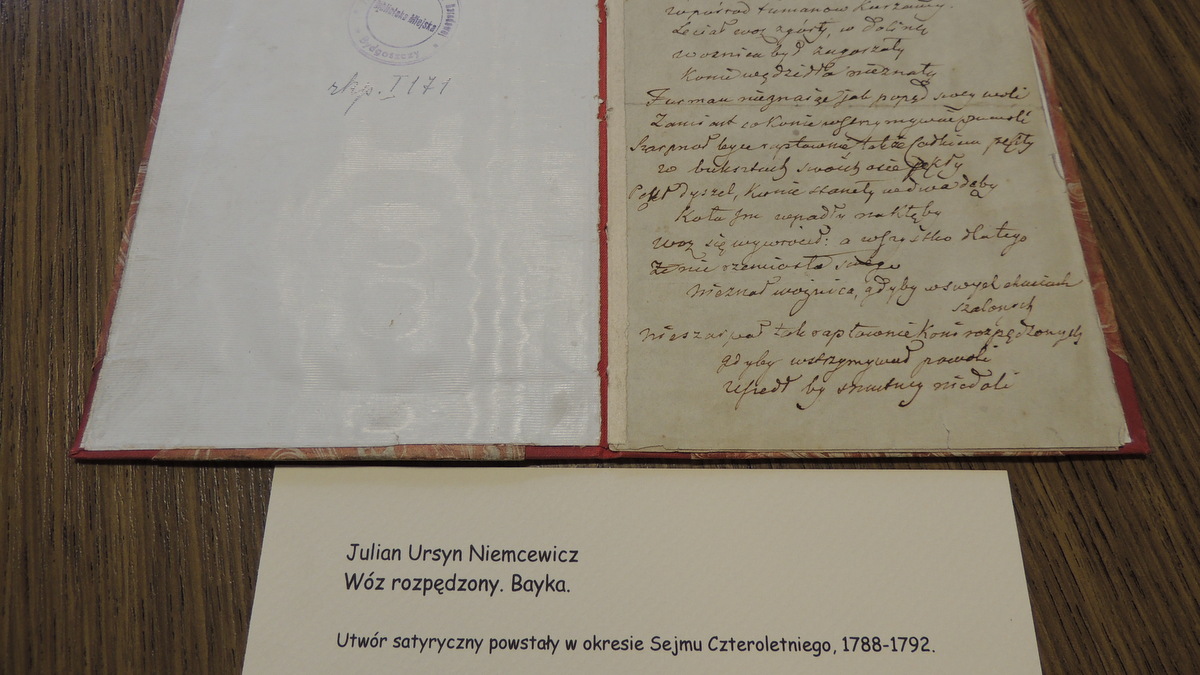 Biblioteka Miejska
Bydgoszczy
rkp. I 171
wpośród tumanów kurzawy.
Leciał woz zgóry, w dolinę
woznica był zagorzały
Konie wędzidła nieznały
Furman nieznaiąc jak popęd swey woli
Zamiast co Konie wstrzymywać powoli
Szarpnął tak
w swoich osie pękły
Pękł dyszel, Konie stanęły w dwa dęby
Koła im wpadły na kłęby
woz się wywrócił: a wszystko dlatego
Że nic rzemiosła swego
nieznał woznica, gdyby w swych chęciach
szalonych
nieszarpał tak raptownie Koni rozpędzonych
gdyby wstrzymywał powoli
Uszedł by smutney niedoli
Julian Ursyn Niemcewicz
Wóz rozpędzony. Bayka.
Utwór satyryczny powstały w okresie Sejmu Czteroletniego, 1788-1792.